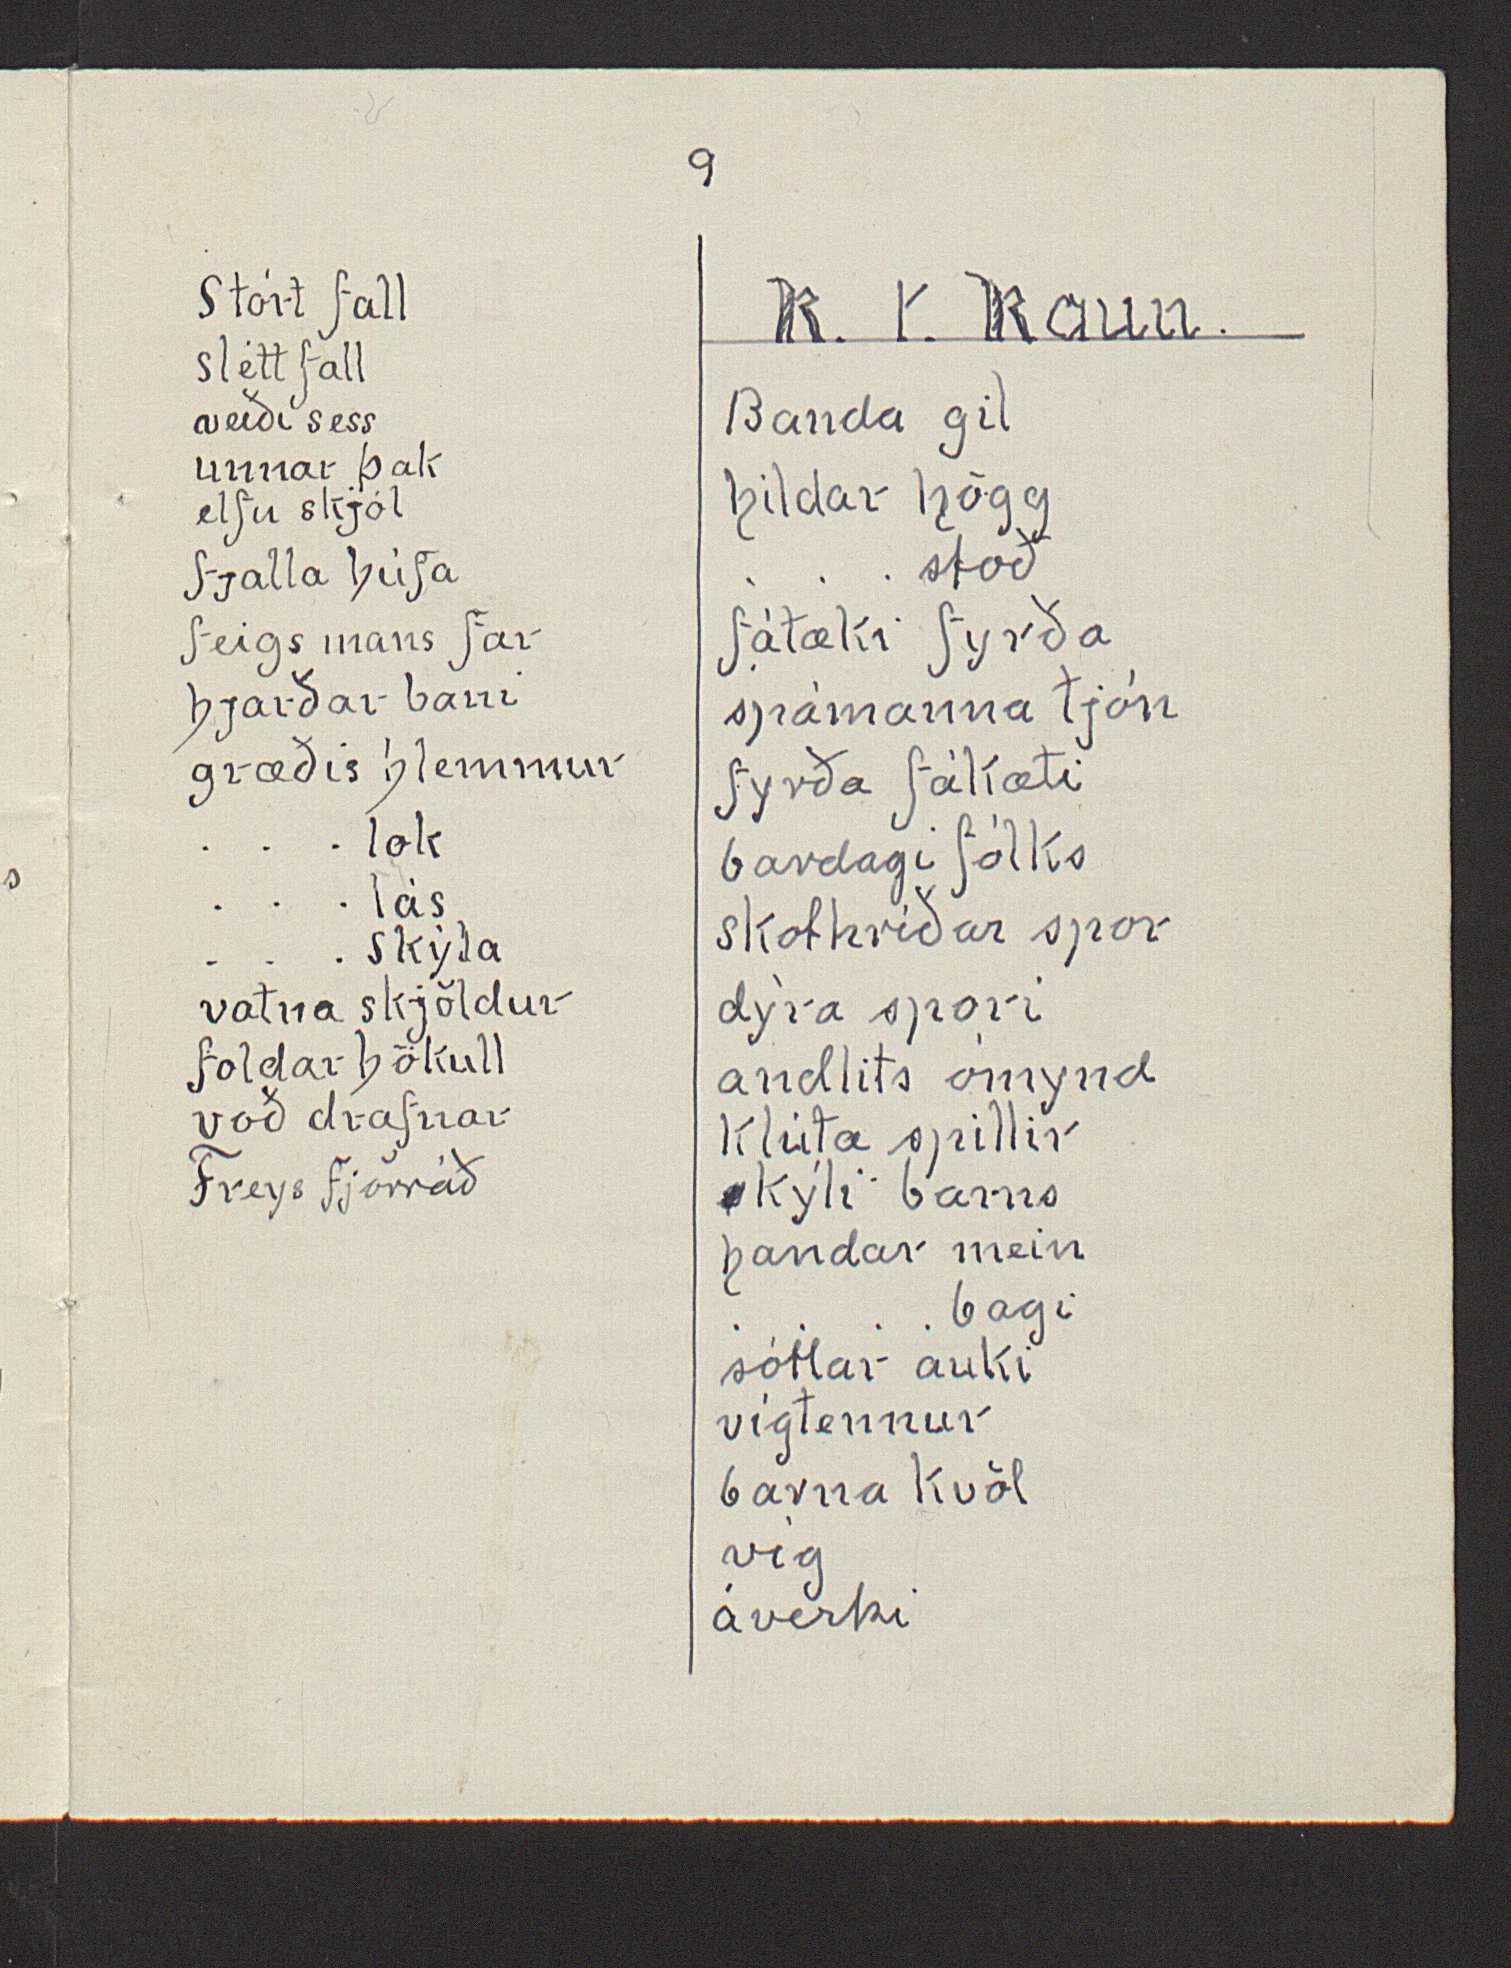 9
Stórt fall
slétt fall
veiði sess
unnar þak
elfu skjól
fjalla húfa
feigs mans far
hjarðar bani
græðis hlemmur
. . . lok
. . . lás
. . . skýla
vatna skjöldur
foldar hökull
voð drafnar
Freys fjörráð
R. ᚴ. Kaun.
Banda gil
hildar högg
. . . stoð
fátæki fyrða
spámanna tjón
fyrða fákæti
bardagi fólks
skothríðar spor
dýra spori
andlits ómynd
klúta spillir
kýli barns
handar mein
. . . . bagi
sóttar auki
vígtennur
barna kvöl
víg
áverki